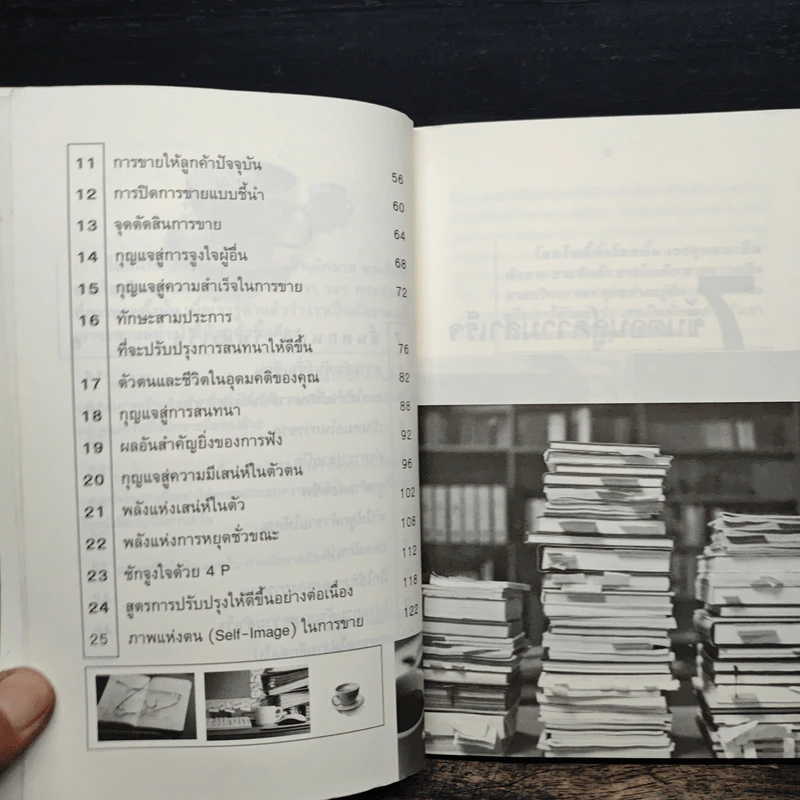 11 การขายให้ลูกค้าปัจจุบัน 56
12 การปิดการขายแบบชี้นำ 60
13 จุดตัดสินการขาย 64
14 กุญแจสู่การจูงใจผู้อื่น 68
15 กุญแจสู่ความสำเร็จในการขาย 72
16 ทักษะสามประการ
ที่จะปรับปรุงการสนทนาให้ดีขึ้น 76
17 ตัวตนและชีวิตในอุดมคติของคุณ 82
18 กุญแจสู่การสนทนา 88
19 ผลอันสำคัญยิ่งของการฟัง 92
20 กุญแจสู่ความมีเสน่ห์ในตัวตน 96
21 พลังแห่งเสน่ห์ในตัว 102
22 พลังแห่งการหยุดชั่วขณะ 108
23 ชักจูงใจด้วย 4 P 112
24 สูตรการปรับปรุงให้ดีขึ้นอย่างต่อเนื่อง 118
25 ภาพแห่งตน (Self-Image) ในการขาย 122
7
ขั้นตอนสู่ความสำเร็จ